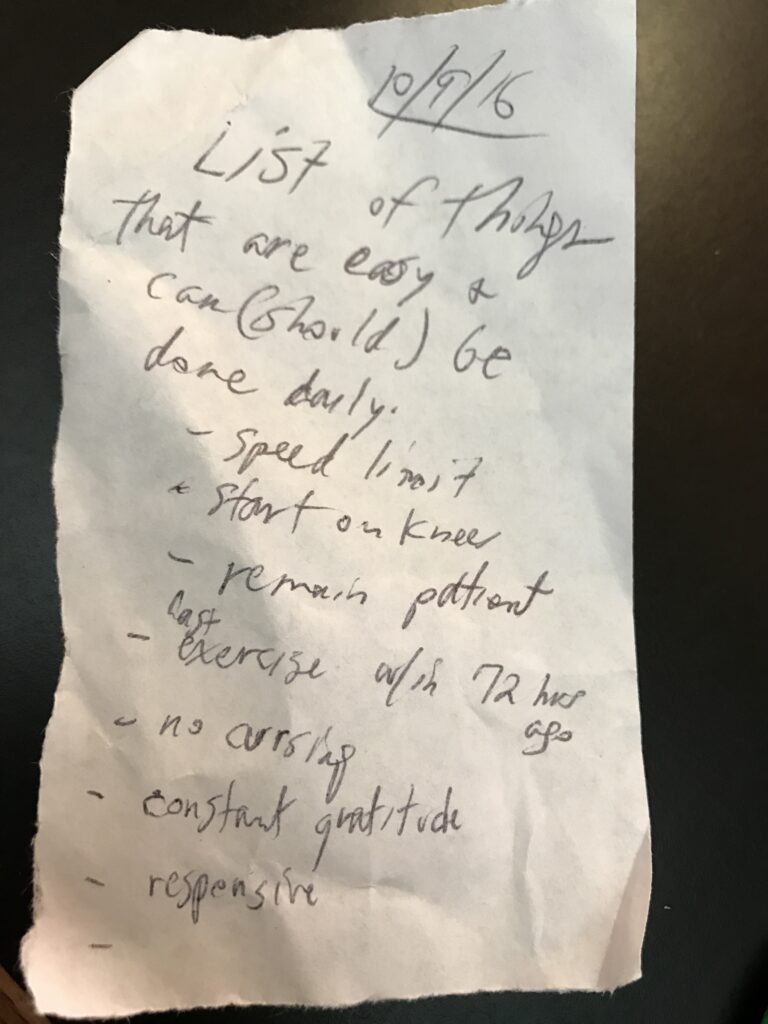 10/9/16
List of things
that are easy &
can (should) be
done daily.
- speed limit
- start on knees
- remain patient
last
- exercise w/in 72 hrs
ago
- no cursing
- constant gratitude
- responsive
-